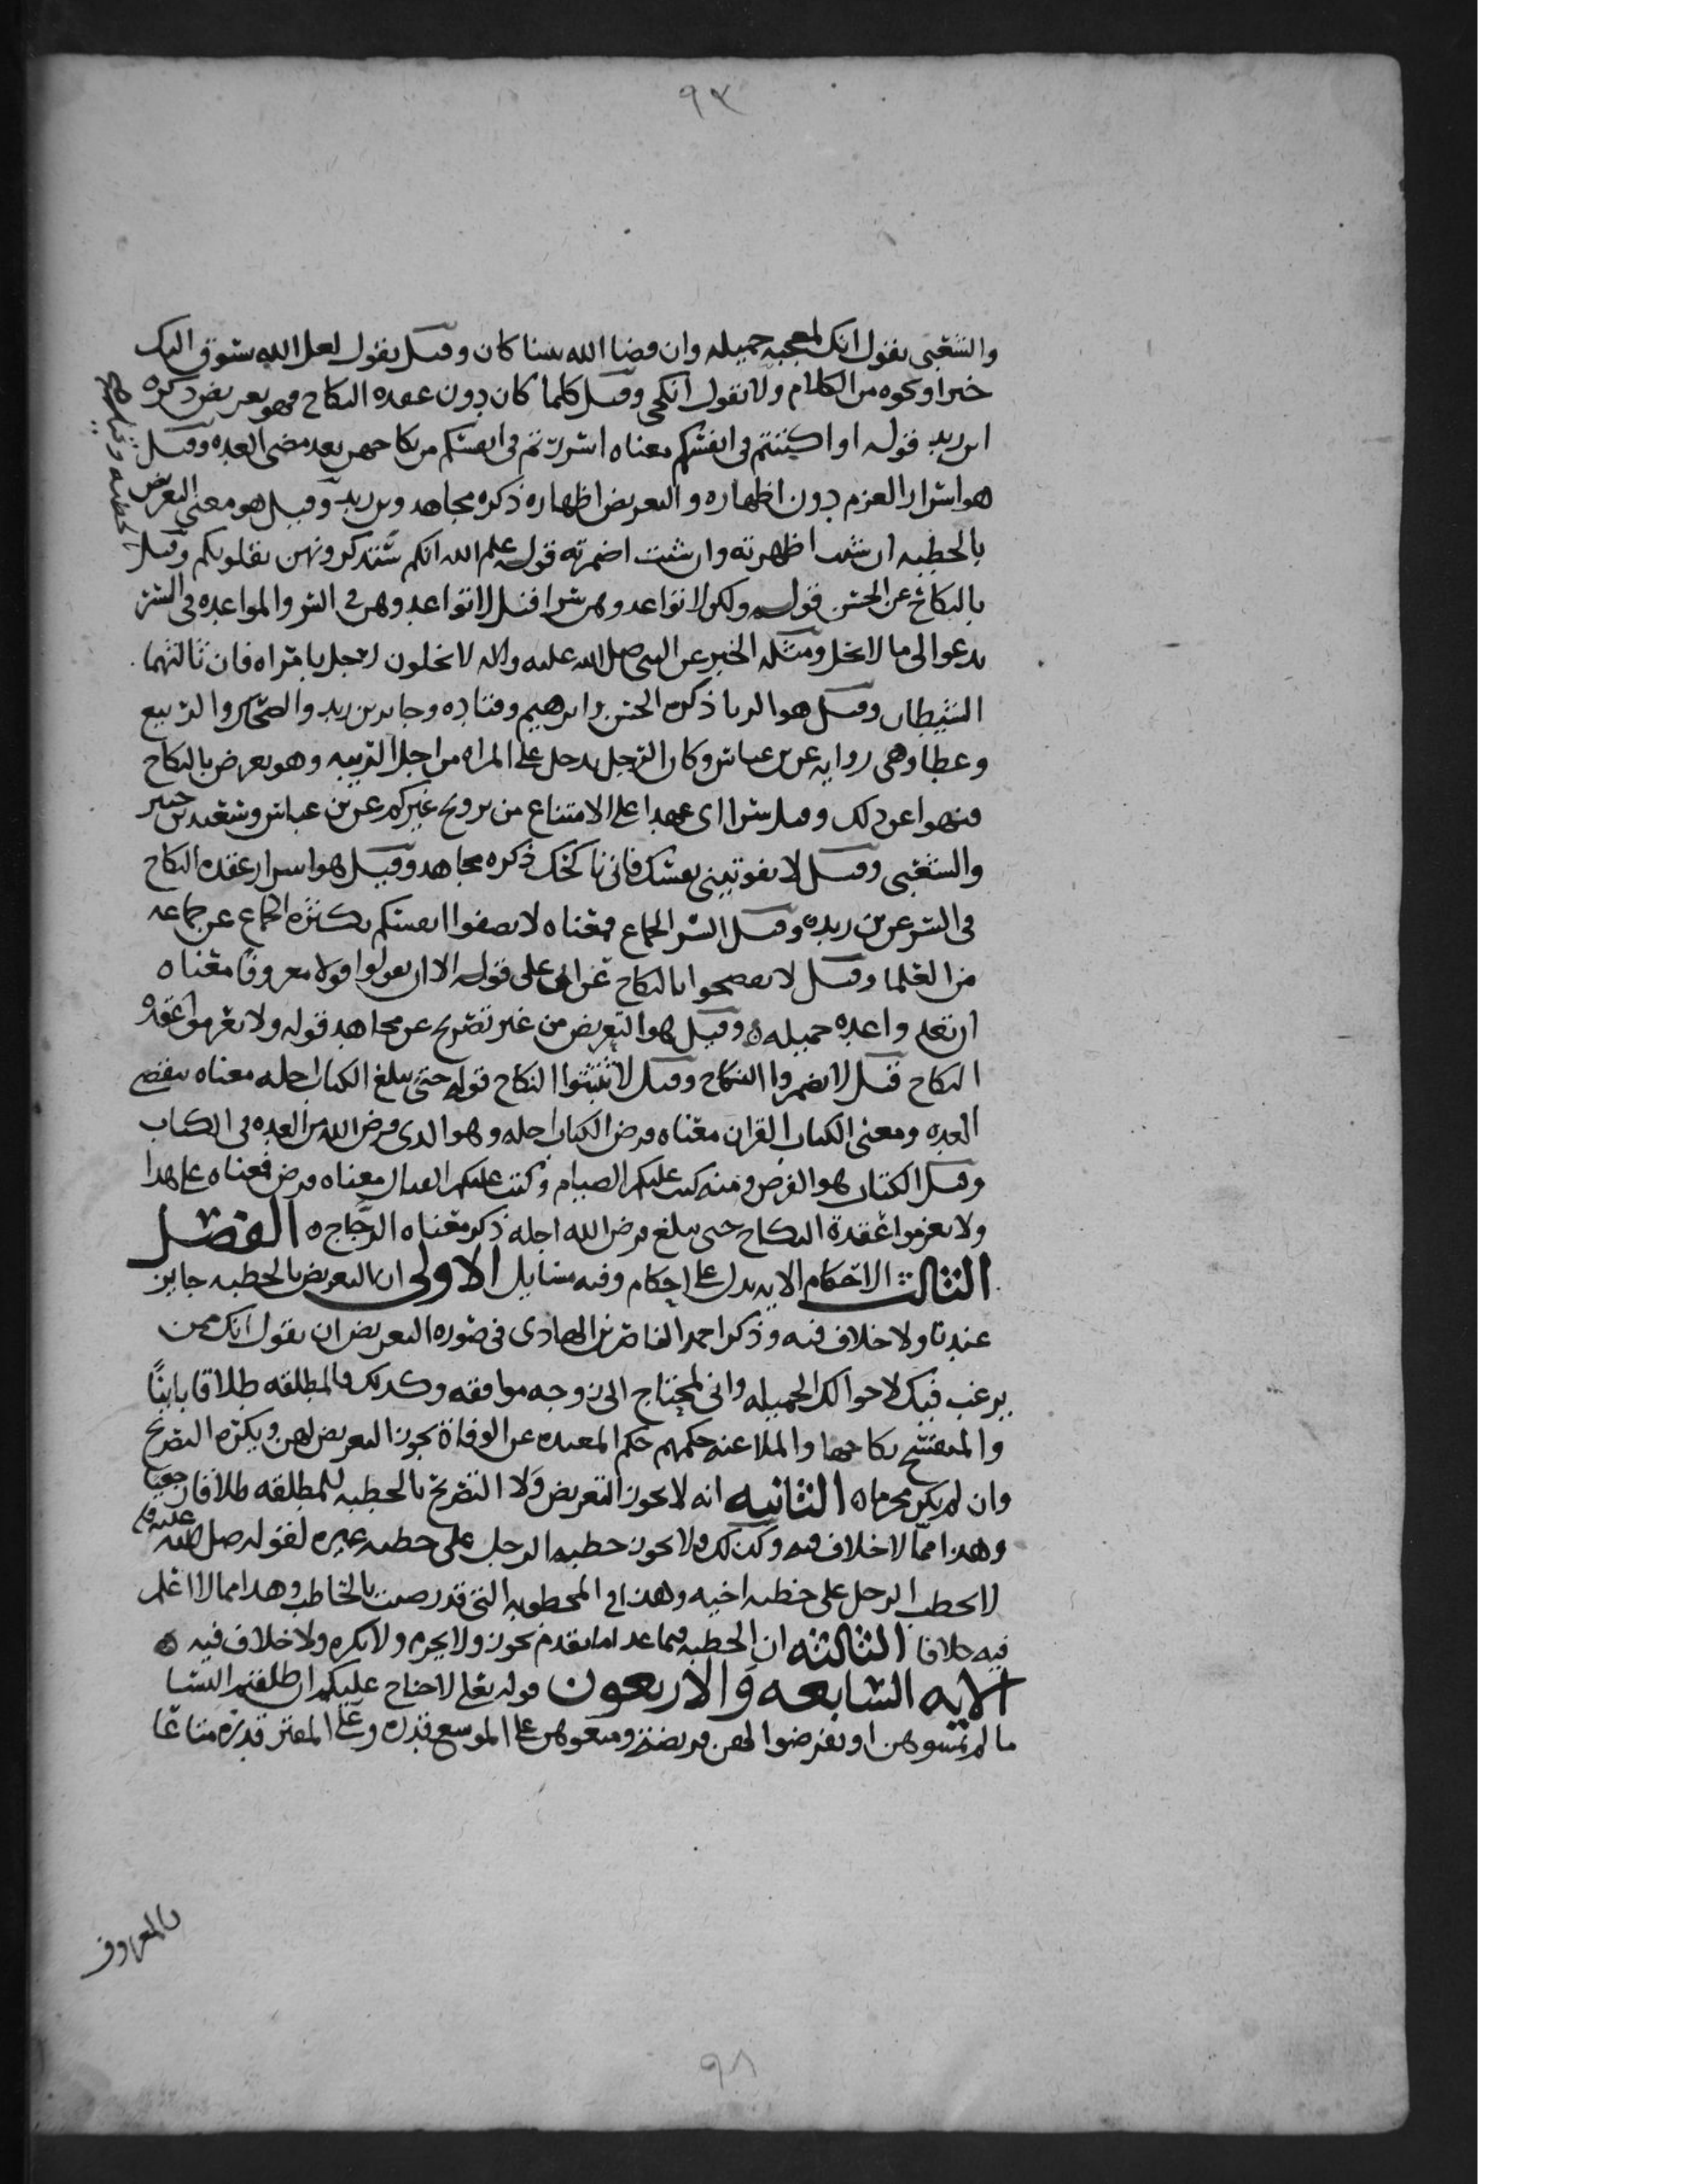 ٩٣
والشعبي يقول انك لمعجبه جميله وان قضا الله شيا كان وقيل يقول لعل الله يسوق اليك
خيرا ونحوه من الكلام ولا يقول انكحي وقيل كلما كان دون عقده النكاح فهو تعريض ذكره
ابن زيد قوله او اكننتم في انفسكم معناه اسررتم في انفسكم من نكاحهن بعد مضي العده وقيل
هو اسرار العزم دون اظهاره والتعريض اظهاره ذكره مجاهد وبن زيد وقيل هو معنى التعريض
بالخطبه ان شيت اظهرته وان شيت اضمرته قوله علم الله انكم ستذكرونهن بقلوبكم وقيل
بالنكاح عن الحسن قوله ولكن لا تواعدوهن سرا قيل لا تواعدوهن في السر والمواعده في السر
يدعوا الى ما لا يحل ومثله الخبر عن النبي صلى الله عليه واله لا يخلون رجل بامراه فان ثالثهما
الشيطان وقيل هو الزنا ذكره الحسن وابرهيم وقتاده وجابر بن زيد والضحاك والربيع
وعطا وهي روايه عن بن عباس وكان الرجل يدخل على المراه من اجل الريبه وهو يعرض بالنكاح
فنهوا عن ذلك وقيل سرا اي عهدا على الامتناع من تزويج غيركم عن بن عباس وسعيد بن جبير
والشعبي وقيل لا تفوتيني نفسك فاني ناكحك ذكره مجاهد وقيل هو اسرار عقده النكاح
في السر عن بن زيد وقيل السر الجماع فمعناه لا تصفوا انفسكم بكثره الجماع عن جماعه
من العلما وقيل لا تفصحوا بالنكاح عن ابي علي قوله الا ان تقولوا قولا معروفا معناه
ان تعد واعده جميله وقيل هو التعريض من غير تصريح عن مجاهد قوله ولا تعزموا عقده
النكاح قيل لا تضمروا النكاح وقيل لا تثبتوا النكاح قوله حتى يبلغ الكتاب اجله معناه تنقضي
العده ومعنى الكتاب القران معناه فرض الكتاب اجله وهو الذي فرض الله من العده في الكتاب
وقيل الكتاب هو الفرض ومنه كتب عليكم الصيام وكتب عليكم القتال معناه فرض فمعناه على هذا
ولا تعزموا عقدة النكاح حتى يبلغ فرض الله اجله ذكر معناه الزجاج ه الفصل
الثالث الاحكام الايه تدل على احكام وفيه مسايل الاولى ان التعريض بالخطبه جايز
عندنا ولا خلاف فيه وذكر احمد الناصر بن الهادي في صوره التعريض ان يقول انك ممن
يرغب فيك لاحوالك الجميله واني لمحتاج الى زوجه موافقه وكذلك فالمطلقه طلاقا باينًا
والمنفسخ نكاحها والملاعنه حكمهم حكم المعتده عن الوفاة يجوز التعريض لهن ويكره التصريح
وان لم يكن محرما ه الثانيه انه لا يجوز التعريض ولا التصريح بالخطبه للمطلقه طلاقا رجعيا
وهذا مما لا خلاف فيه وكذلك ولا يجوز خطبه الرجل على خطبه غيره لقوله صلى الله عليه
لا يخطب الرجل على خطبه اخيه وهذا في المخطوبه التي قد رضت بالخاطب وهذا مما لا اعلم
فيه خلافا الثالثه ان الخطبه فيما عدا ما تقدم يجوز ولا يحرم ولا يكره ولا خلاف فيه ه
الايه السابعه والاربعون قوله تعلى لا جناح عليكم ان طلقتم النسا
ما لم تمسوهن او تفرضوا لهن فريضة ومتعوهن على الموسع قدره وعلى المقتر قدره متاعا
بالمعروف
٩٨